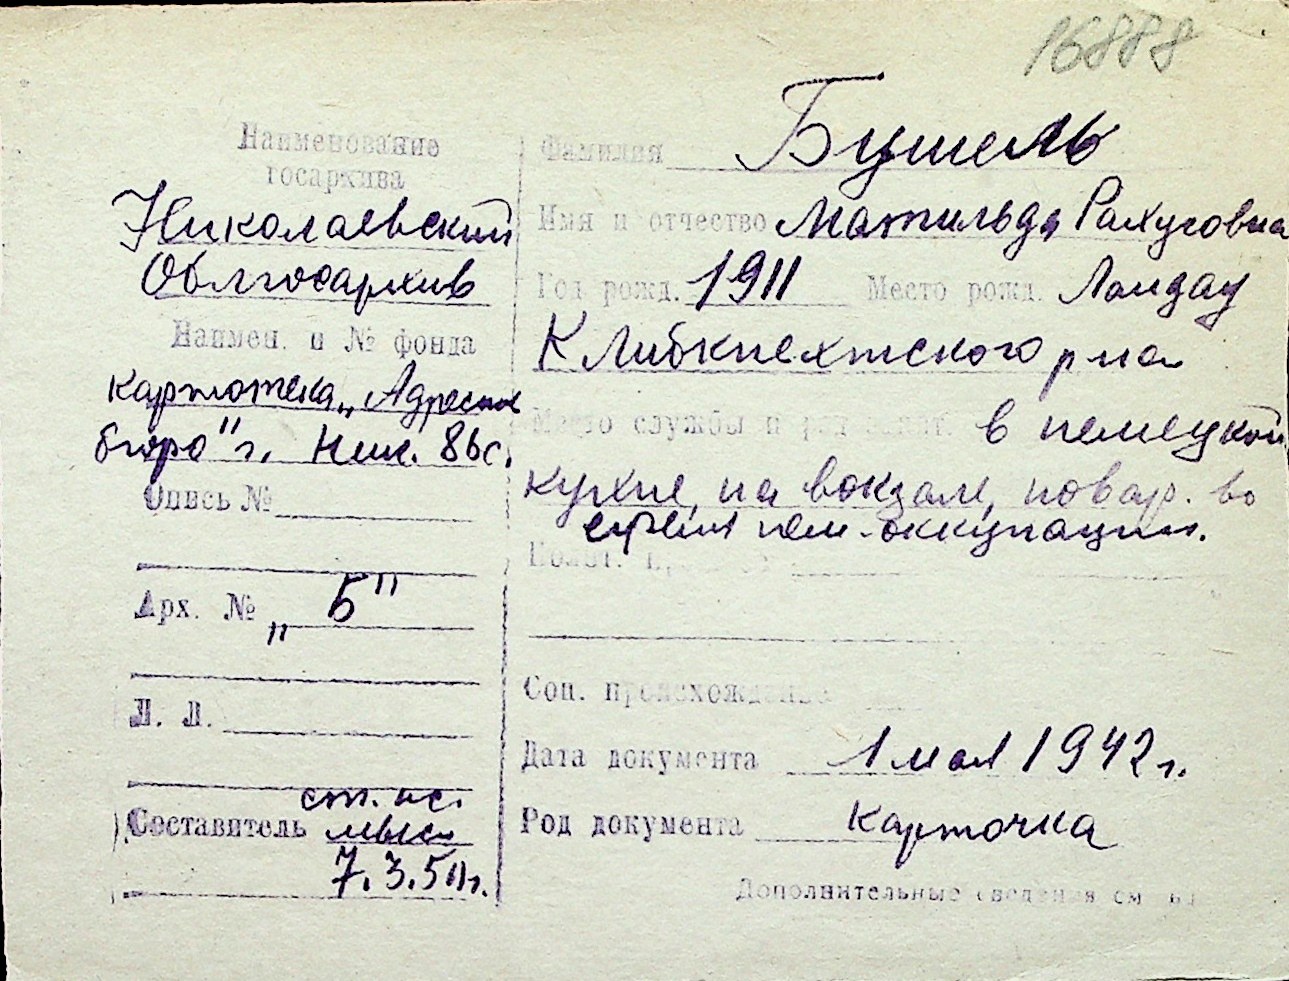 16888
Наименование
госархива
Николаевский
Облгосархив
Наимен. и № фонда
картотека „Адресное
бюро" г. Ник.
Опись №
Арх. № „Б"
Л. Л.
Составитель ст. н.с.
7.3.50г.
Фамилия Бушель
Имя и отчество Матильда
Год рожд. 1911 Место рожд. Ландау
К Либкнехтского р на
Место службы и в немецкой
кухне, на вокзале, повар. во
время нем. оккупации.
Полит.
Соц. происхождение
Дата документа 1 мая 1942 г.
Род документа карточка
Дополнительные сведения см